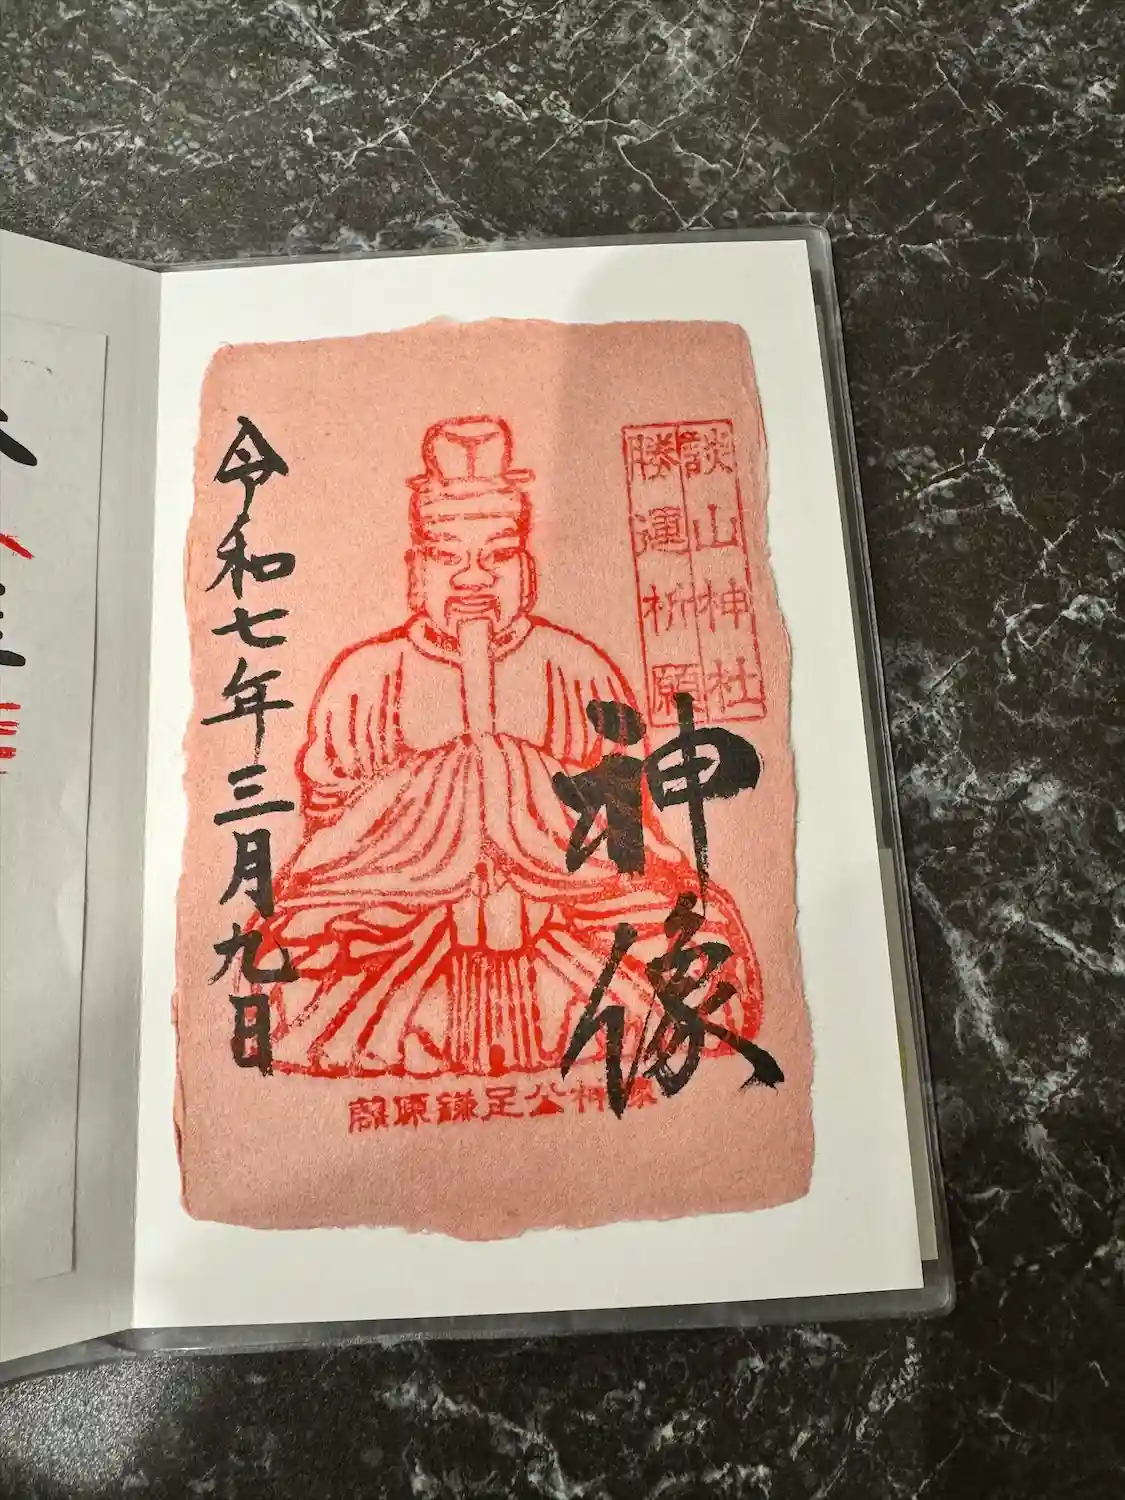 談山神社
勝運祈願
神像
令和七年三月九日
藤原鎌足公神像